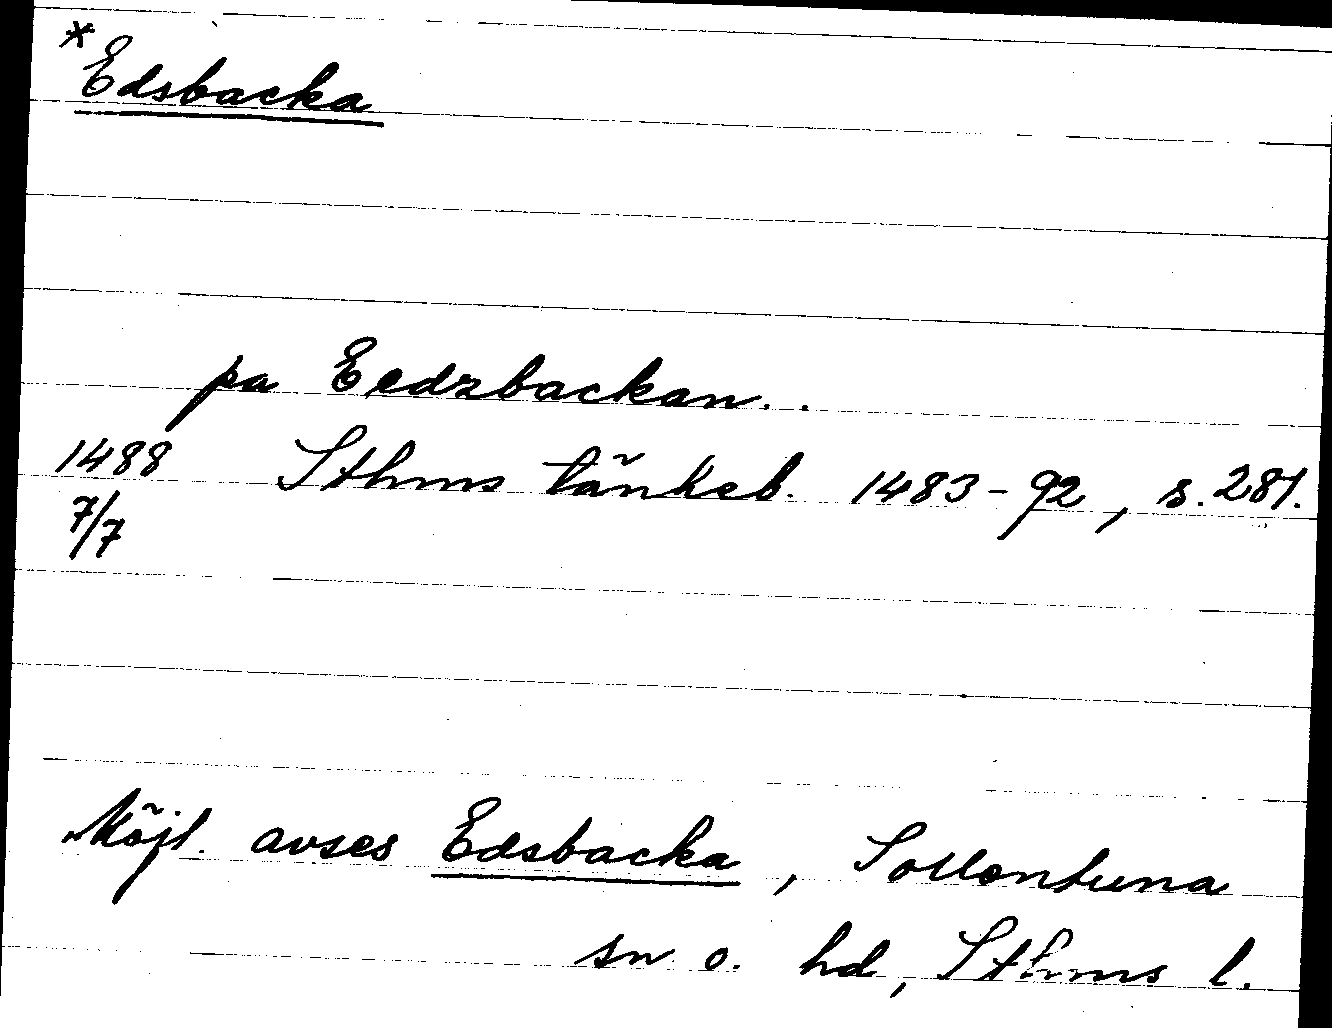 *Edsbacka
pa Eedzbackan..
1488 Sthms tänkeb. 1483-92, s. 281.
7/7
Möjl. avses Edsbacka, Sollentuna
sn o. hd, Sthms l.